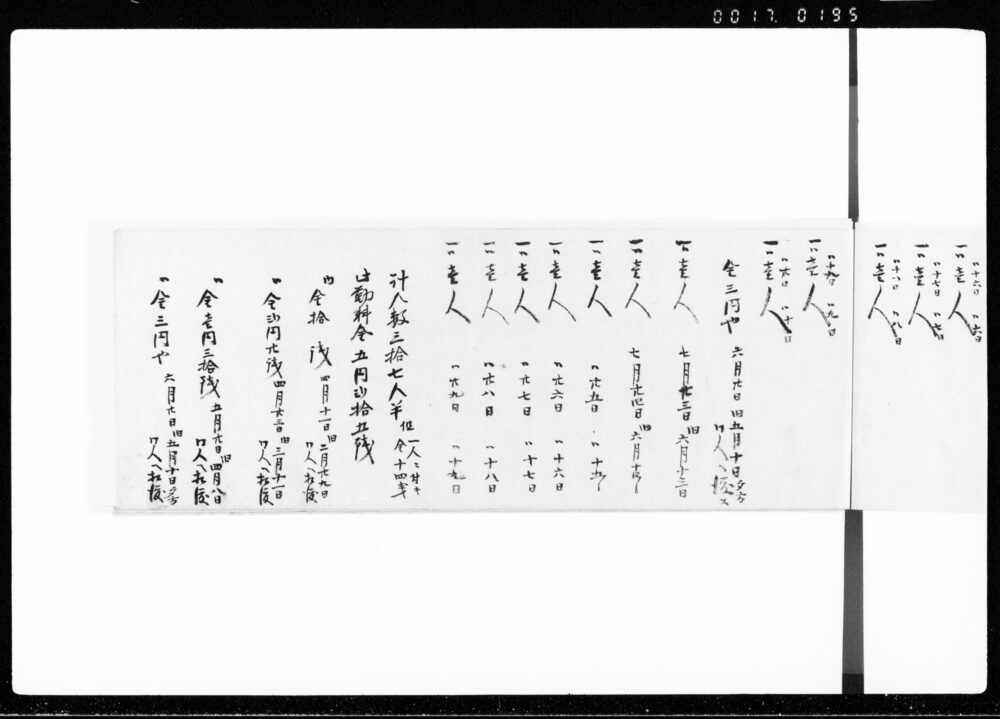 0017 0195
一〃壱人 〃十六日 〃六日
一〃壱人 〃十七日 〃七日
一〃壱人 〃十八日 〃八日
一〃壱人 〃十九日 〃九日
一〃壱人 〃廿日 〃十日
金三円也 六月廿日 旧五月十日夕方 同人へ渡ス
一〃壱人 七月廿三日 旧六月十三日
一〃壱人 七月廿四日 旧六月十四日
一〃壱人 〃廿五日 〃十五日
一〃壱人 〃廿六日 〃十六日
一〃壱人 〃廿七日 〃十七日
一〃壱人 〃廿八日 〃十八日
一〃壱人 〃廿九日 〃十九日
計人数三拾七人半 但一人ニ付キ金十四銭
此勤料金五円弐拾五銭
内金拾 銭 四月十一日 旧二月廿九日 同人へ相渡
〃金弐円廿銭 四月廿三日 旧三月十一日 同人へ相渡
〃金壱円三拾銭 五月廿日 旧四月八日 同人へ相渡
〃金三円也 六月廿日 旧五月十日夕方 同人へ相渡